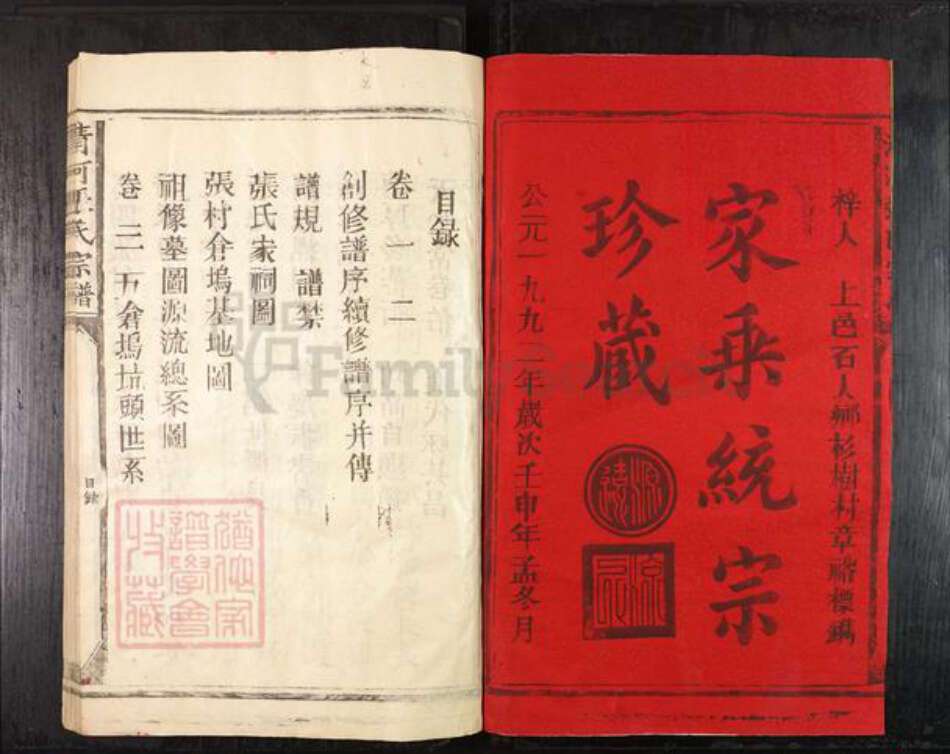 梓人 上邑石人鄉杉樹村章 標鐫
家乘統宗
珍藏
源遠
流長
公元一九九二年歲次壬申年孟冬月
目録
卷一 二
創修譜序續修譜序并傳
譜規 譜禁
張氏家祠圖
張村倉塢基地圖
祖像墓圖源流總系圖
卷三 五倉塢坑頭世系
清河張氏宗譜
目録
猶他家譜學會收藏
Family